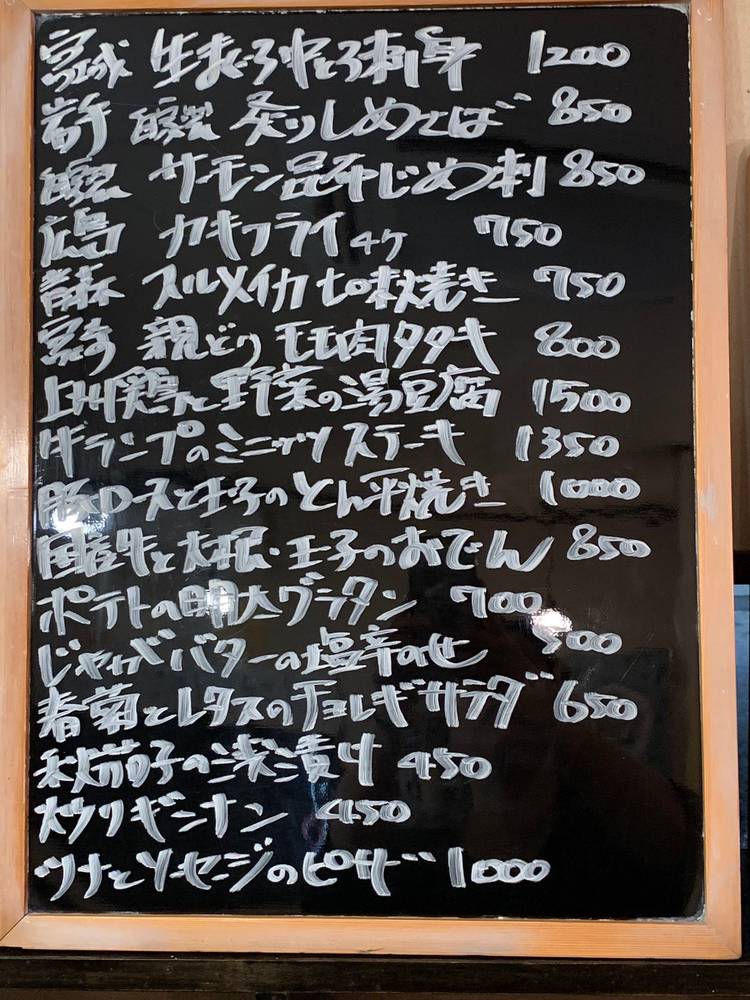 宮城 生まぐろ中とろ刺身 1200
岩手 自家製 炙りしめさば 850
自家製 サーモン昆布じめ刺 850
広島 カキフライ 4ケ 750
青森 スルメイカ 七味焼き 750
親どりモモ肉タタキ 800
上州鶏と野菜の湯豆腐 1500
牛ランプのミニッツステーキ 1350
豚ロースと玉子のとん平焼き 1000
国産牛と大根・玉子のおでん 850
ポテトの明太グラタン 700
じゃがバターの塩辛のせ 500
春菊とレタスのチョレギサラダ 650
秋茄子の浅漬け 450
炒りギンナン 450
ツナとソーセージのピザ 1000